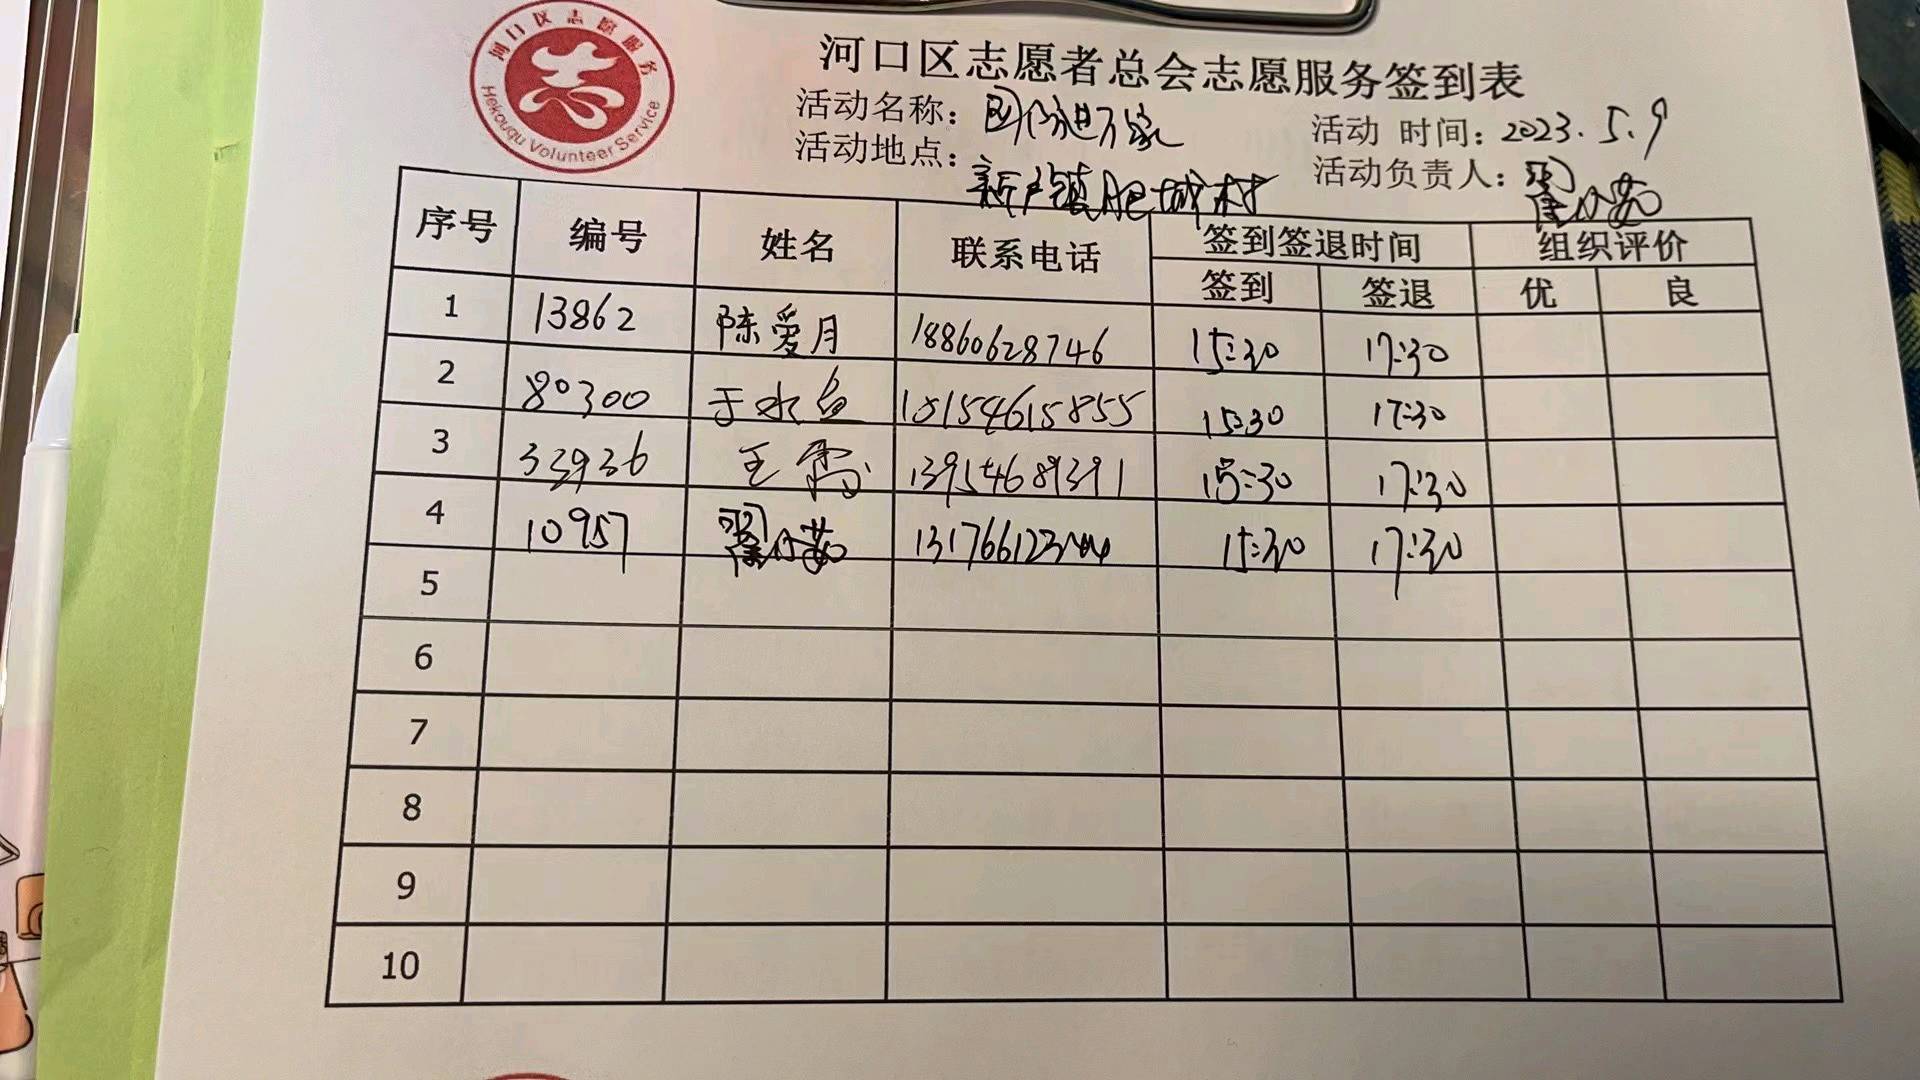 河口区志愿服务
Hekouqu Volunteer Service
河口区志愿者总会志愿服务签到表
活动名称： 活动 时间：2023.5.9
活动地点：新户镇肥城村 活动负责人：翟小茹
序号 编号 姓名 联系电话 签到签退时间 组织评价
签到 签退 优 良
1 13862 陈爱月 18860628746 15:30 17:30
2 80300 于水 18154615855 15:30 17:30
3 33936 王 13954689391 15:30 17:30
4 10957 翟小茹 15:30 17:30
5
6
7
8
9
10